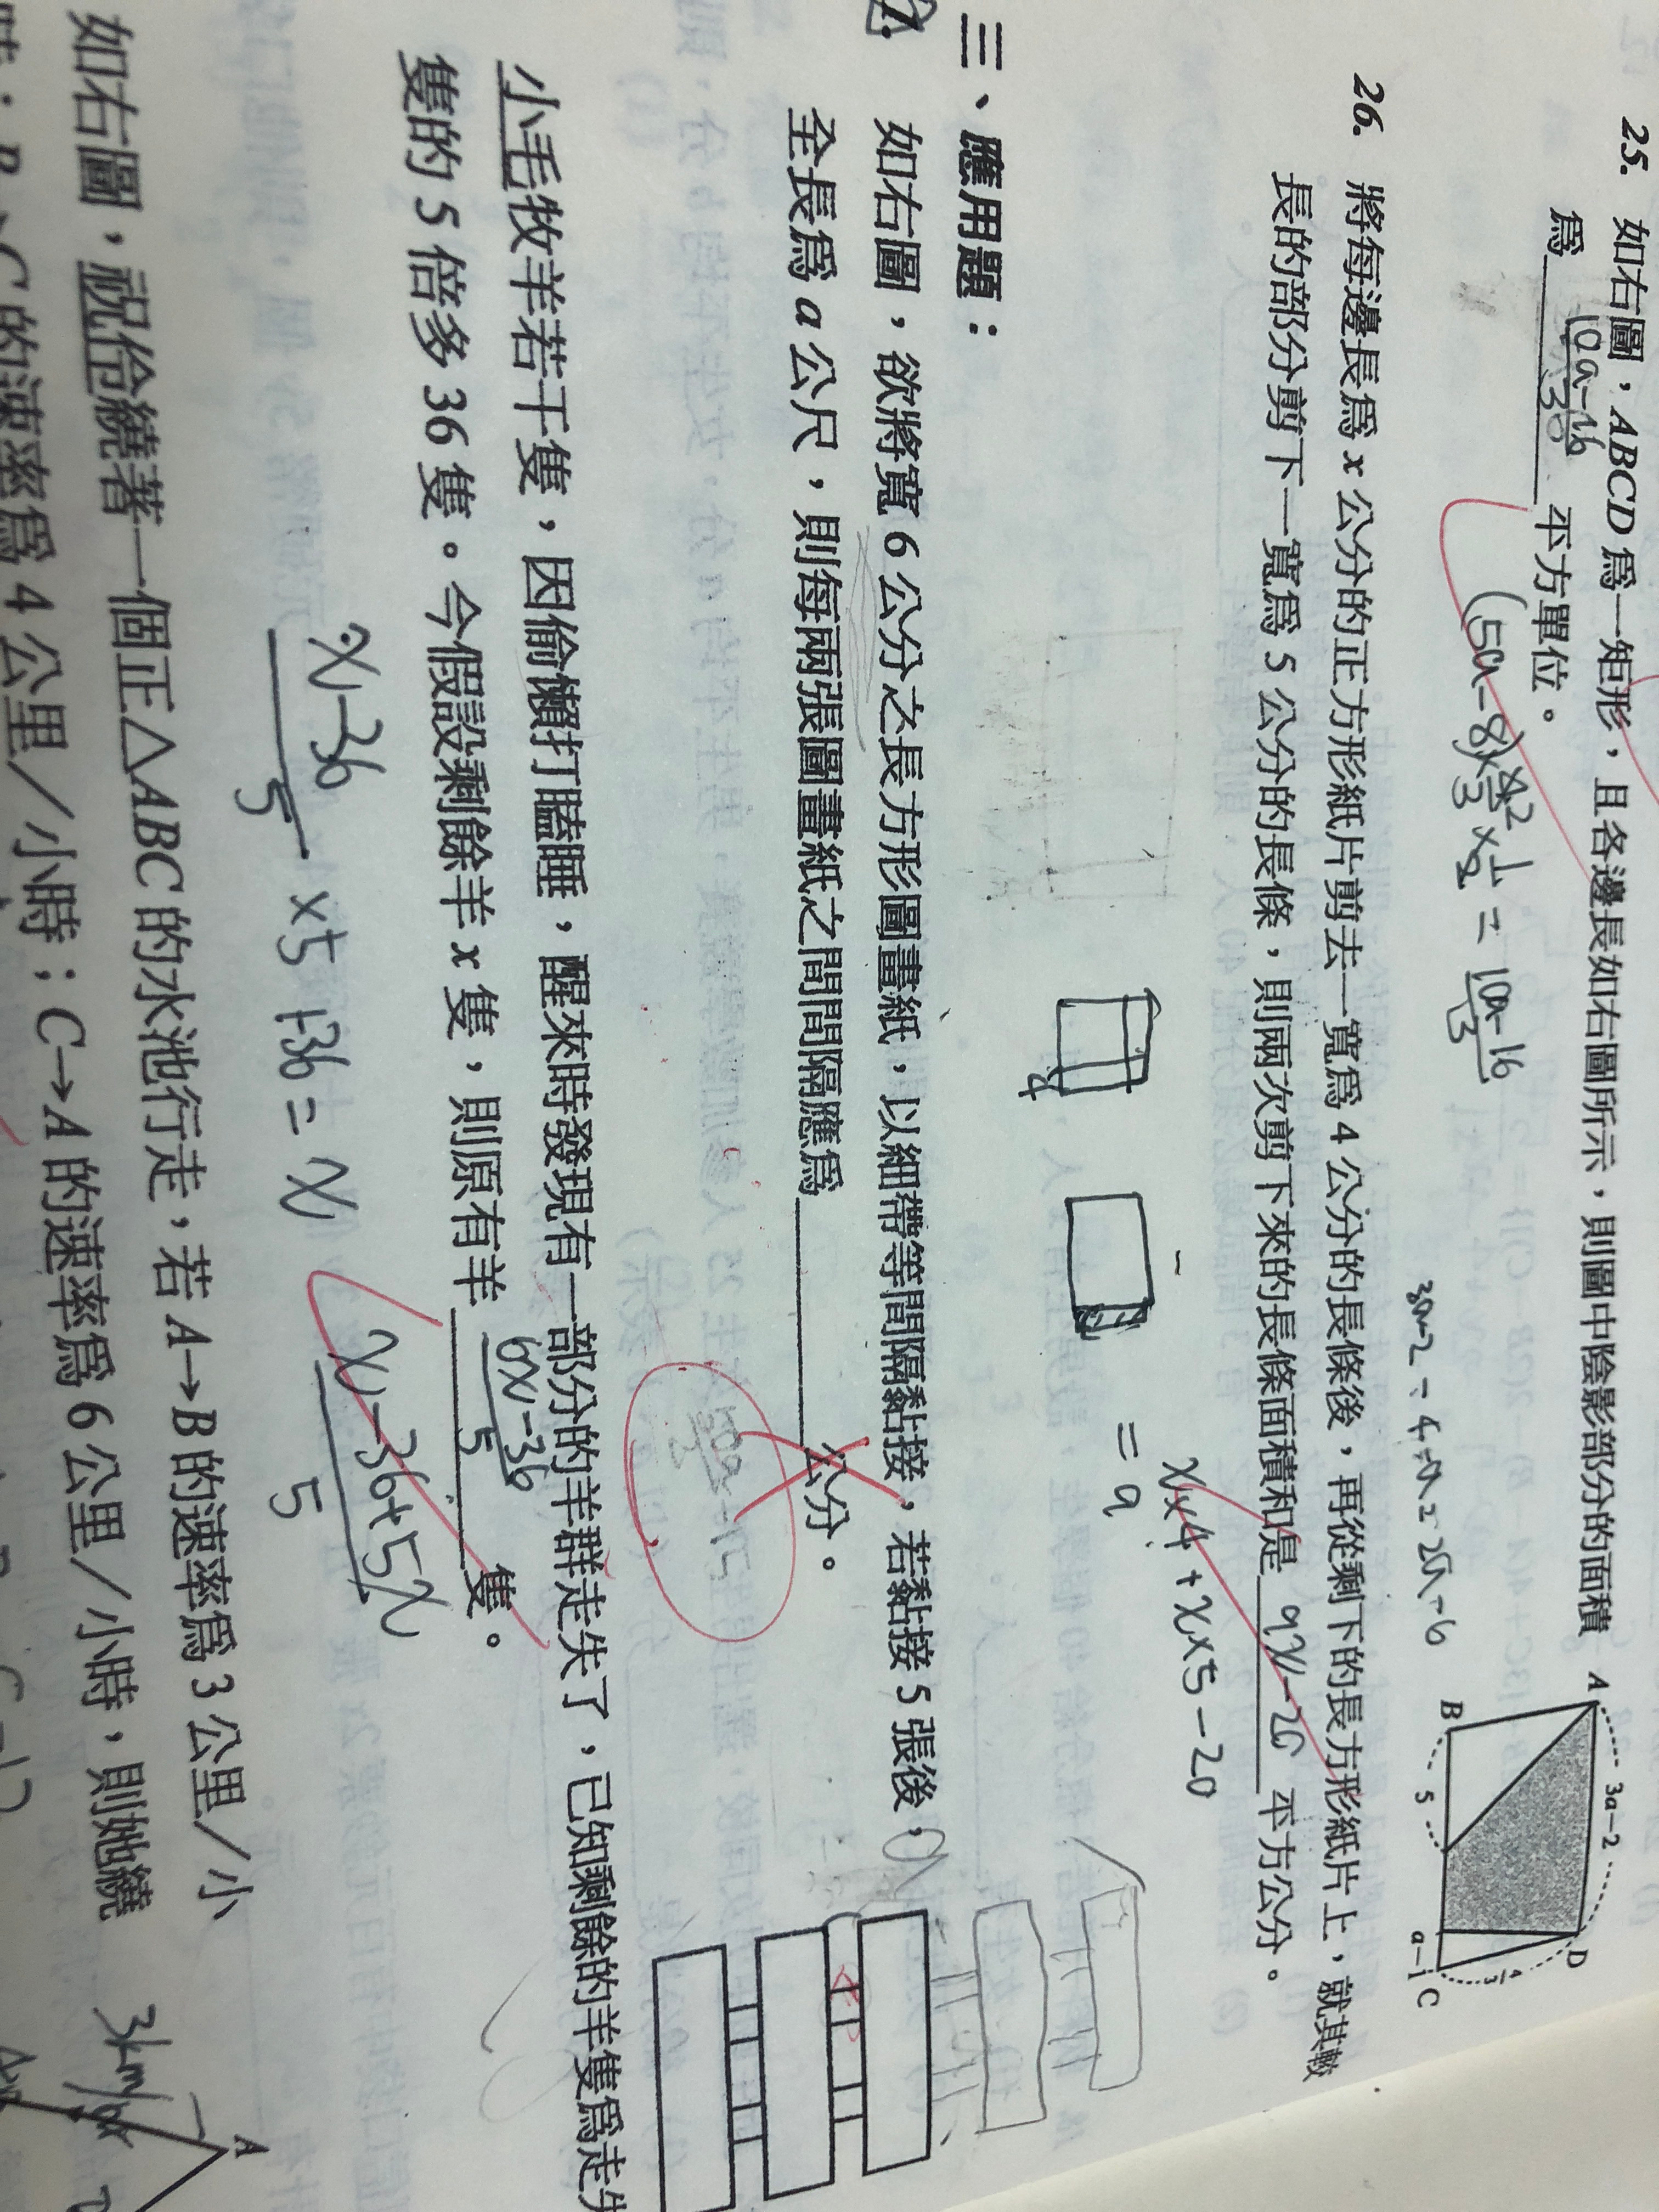 25. 如右圖，ABCD 為一矩形，且各邊長如右圖所示，則圖中陰影部分的面積
為 10a-16/3 平方單位。
(5a-8)×4/3×1/2 = 10a-16/3
3a-2
A
D
B
5
a-1
C
4/3
26. 將每邊長為 x 公分的正方形紙片剪去一寬為 4 公分的長條後，再從剩下的長方形紙片上，就其較
長的部分剪下一寬為 5 公分的長條，則兩次剪下來的長條面積和是 9x-20 平方公分。
x×4+x×5-20
= 9
4
三、應用題：
如右圖，欲將寬 6 公分之長方形圖畫紙，以細帶等間隔黏接，若黏接 5 張後，
全長為 a 公尺，則每兩張圖畫紙之間間隔應為 公分。
小毛牧羊若干隻，因偷懶打瞌睡，醒來時發現有一部分的羊群走失了，已知剩餘的羊隻為走失
隻的 5 倍多 36 隻。今假設剩餘羊 x 隻，則原有羊 6x-36/5 隻。
x-36/5 ×5+36=x
x-36+5x/5
如右圖，祝伶繞著一個正△ABC 的水池行走，若 A→B 的速率為 3 公里／小
時；B→C 的速率為 4 公里／小時；C→A 的速率為 6 公里／小時，則她繞
A